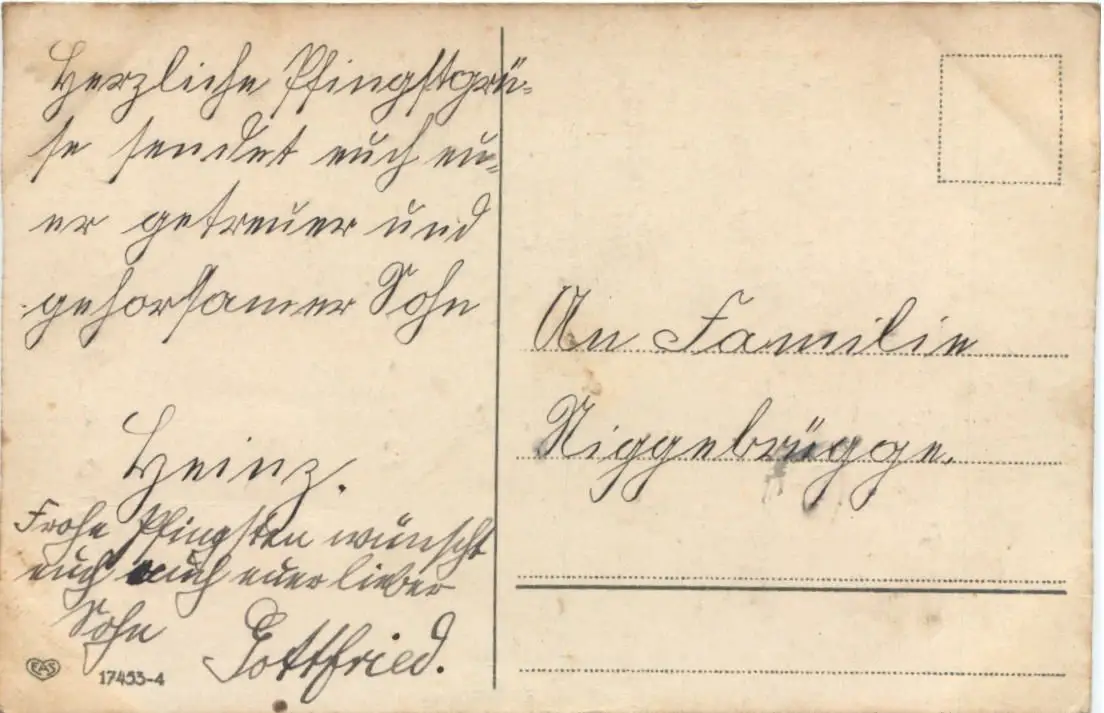 Herzliche Pfingstgrü-
se sendet euch eu-
er getreuer und
gehorsamer Sohn
Heinz.
Frohe Pfingsten wünscht
euch auch euer lieber
Sohn
Gottfried.
EAS
17453-4
An Familie
Niggebrügge.